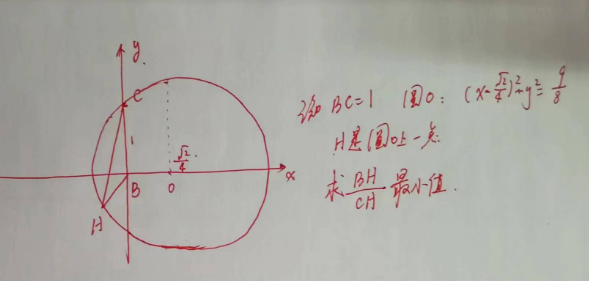 y
C
1
√2/4
x
B
O
H
已知 BC=1 圆O: (x-√2/4)²+y²=9/8
H是圆O上一点
求 BH/CH 最小值.